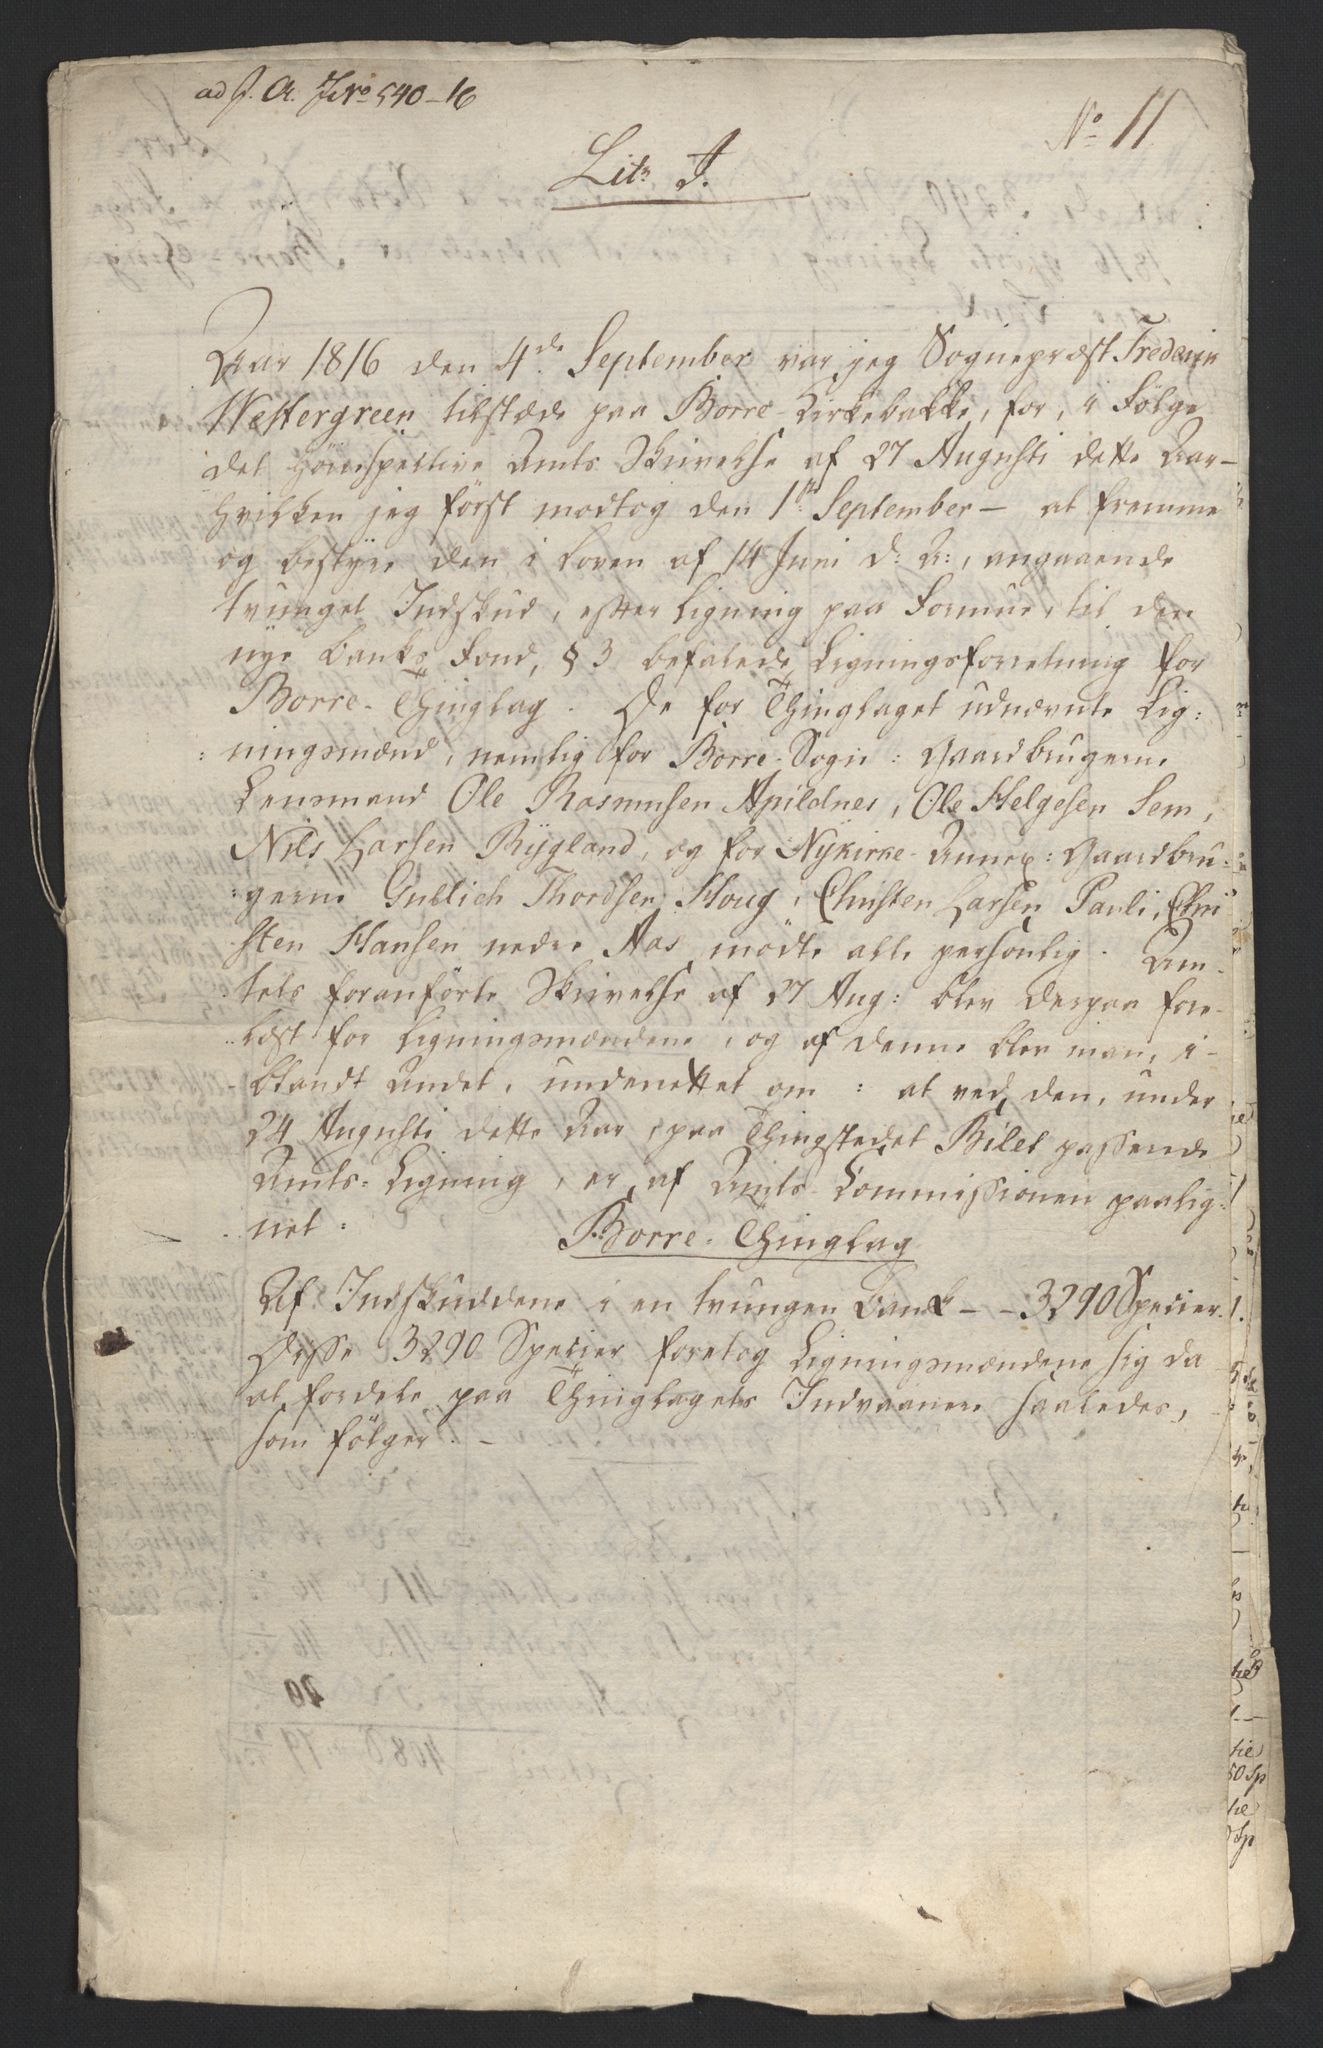 ad J. A. J No 540-16
No 11
Litr J.
Aar 1816 den 4de September var jeg Sognepræst Frederik
Westergreen tilstæde paa Borre Kirkebakke, for, i Følge
det høirespective Amts Skrivelse af 27 Augusti dette Aar -
hvilken jeg først modtog den 1ste September - at fremme
og bestyre den i Loven af 14 Juni d: A:, angaaende
tvunget Indskud, efter Ligning paa Formue, til den
nye Banks Fond, § 3 befalede Ligningsforretning for
Borre-Thinglag. De for Thinglaget udnævnte Lig:
:ningsmænd, nemlig for Borre-Sogn: Gaardbrugerne
Lensmand Ole Rasmusen Apildnes, Ole Helgesen Sem,
Nils Larsen Rÿgland, og for Nykirke-Annex: Gaardbru:
:gerne Gullich Thordsen Houg, Christen Larsen Pauli, Chri
sten Hansen nedre Aas mødte alle personlig. Am-
tets foranførte Skrivelse af 27 Aug: blev derpaa fore-
læst for Ligningsmændene, og af denne blev man, i-
blandt Andet, underrettet om: at ved den, under
24 Augusti dette Aar, paa Thingstedet Bilet passerede
Amts-Ligning, er af Amts-Commissionen paalig:
net:
Borre-Thinglag
Af Indskuddene i en tvungen Bank - - 3290 Specier.
Disse 3290 Specier foretog Ligningsmændene sig da
at fordele paa Thinglagets Indvaanere saaledes,
som følger. -